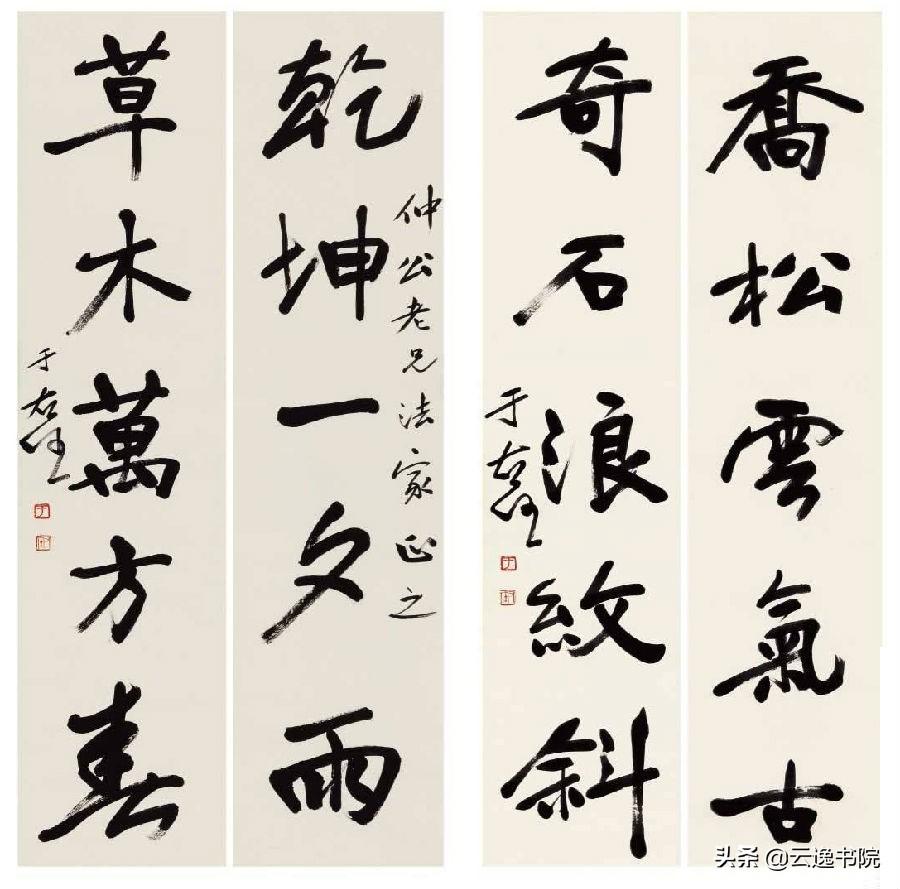 喬松雲氣古
奇石浪紋斜
于右任
乾坤一夕雨
仲公老兄法家正之
草木萬方春
于右任
头条 @云逸书院